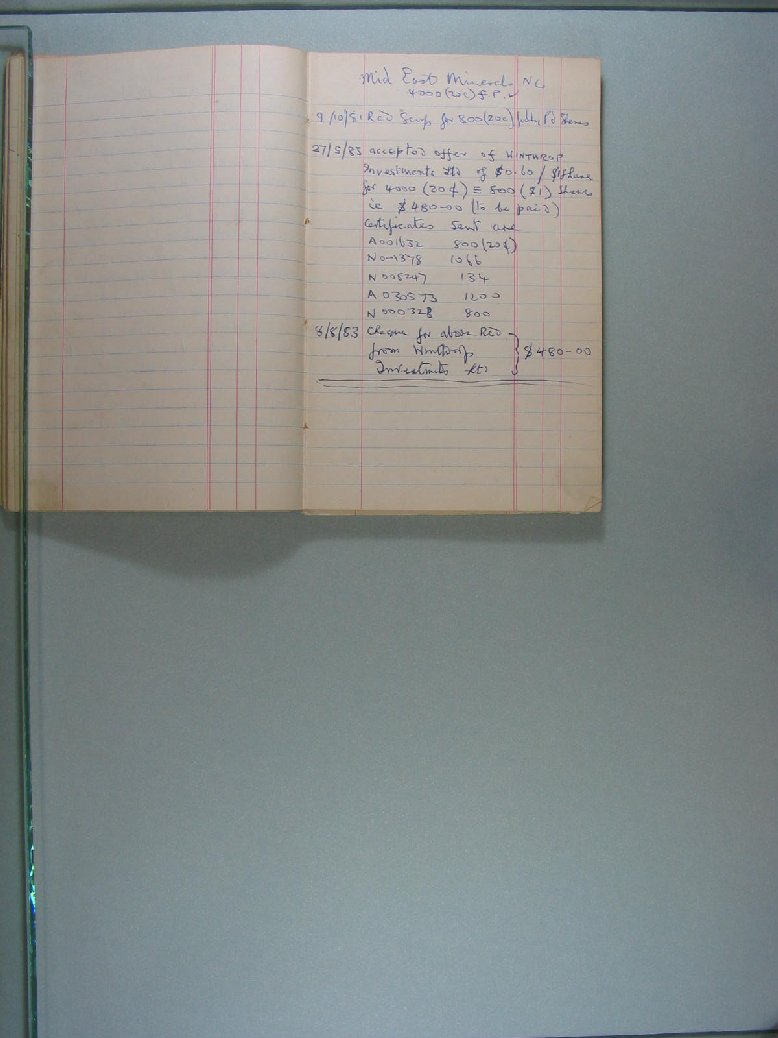 Mid East Minerals NL
4000 (20c) F.P.
9/10/81 REC'D Scrip for 800 (20c) fully P'd Shares
27/5/83 accepted offer of WINTHROP
Investments Ltd of $0.60 / $1 Share
for 4000 (20¢) = 800 ($1) Shares
ie $480-00 (to be paid)
Certificates Sent are
A001632 800 (20¢)
1066
N005247 134
A030573 1200
N000328 800
8/8/83 Cheque for above REC'D
from Winthrop $480-00
Investments Ltd